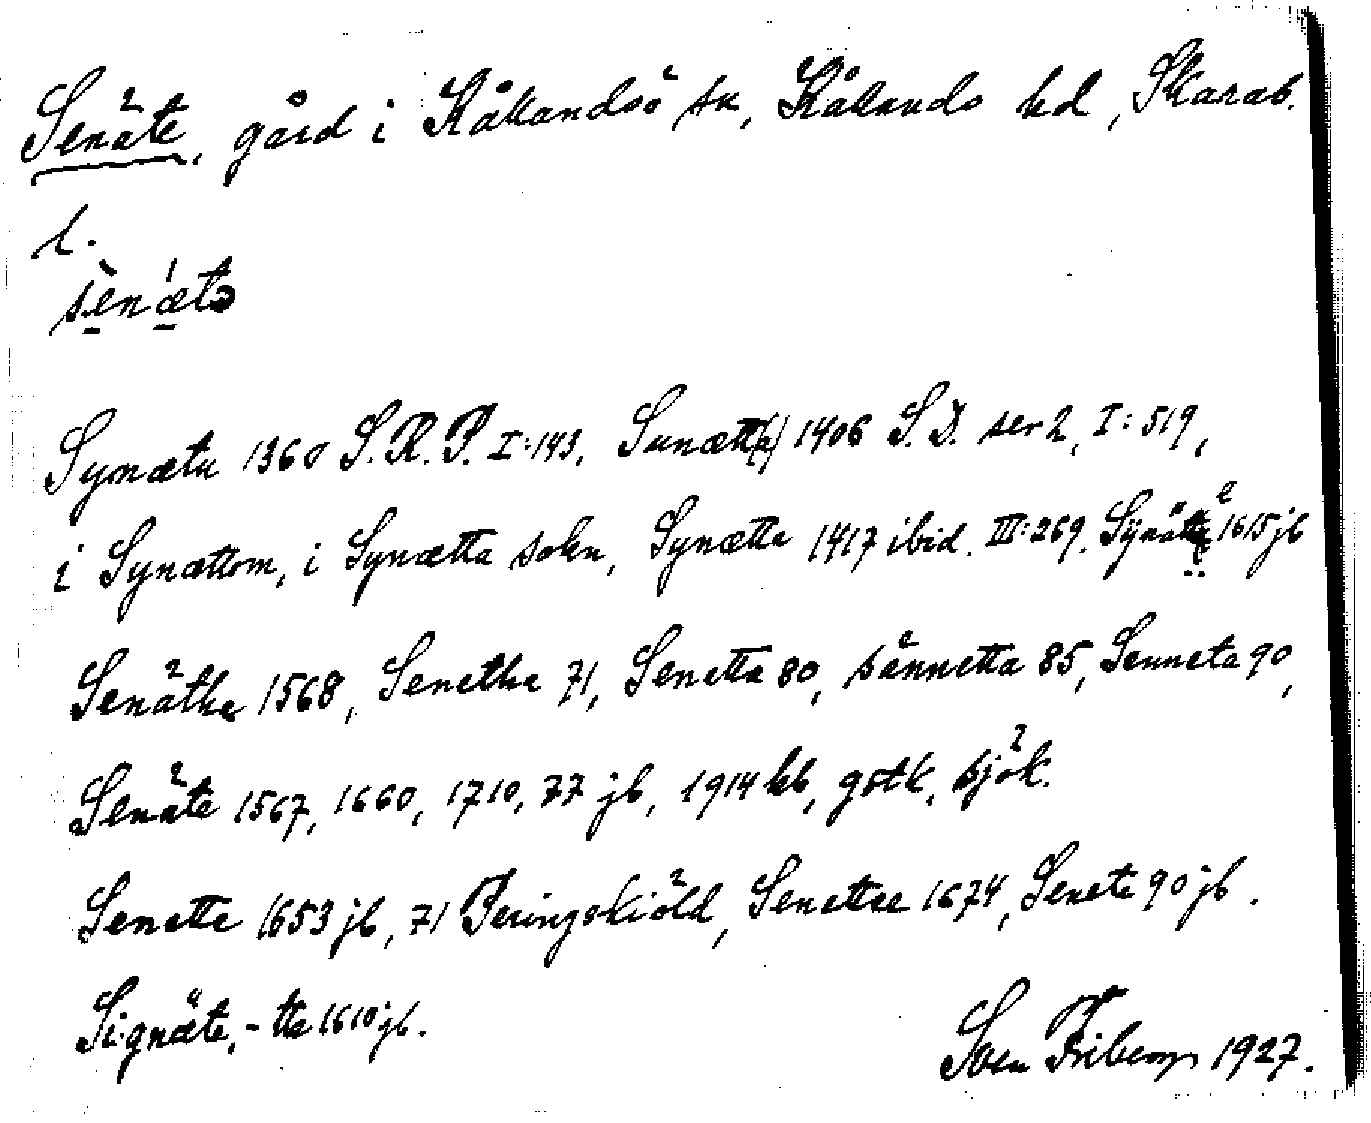 Senäte, gård i Kållandsö sn, Kållands hd, Skarab.
l.
senætə
Synætu 1360 S.R.P. I:143, Sunætt(h) 1406 S.D. ser 2, I:519,
i Synættom, i Synætta sokn, Synætta 1417 ibid. III:269. Synätte 1615 jb
Senäthe 1568, Senethe 71, Senetta 80, sännetta 85, Senneta 90,
Senäte 1567, 1660, 1710, 77 jb, 1914 kb, gstk, sjök.
Senette 1653 jb, 71 Peringskiöld, Senettee 1674, Senete 90 jb.
Signäte, -tte 1610 jb.
Sven Friberg 1927.